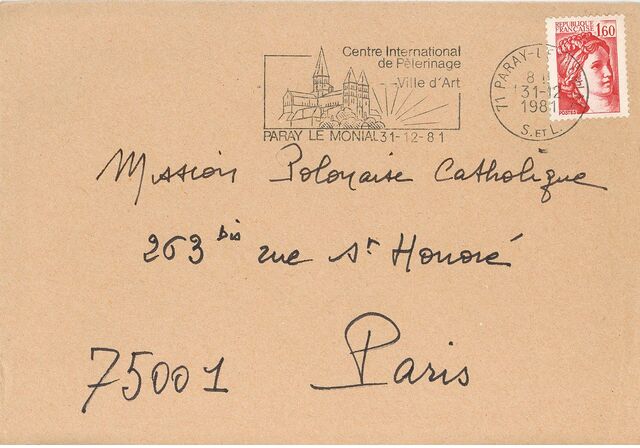 Centre International
de Pèlerinage
Ville d'Art
PARAY LE MONIAL 31-12-81
71 PARAY-LE
8 H
31-12
1981
S. ET L.
REPUBLIQUE
FRANÇAISE
1,60
POSTES
Mission Polonaise Catholique
263 bis rue St Honoré
75001 Paris